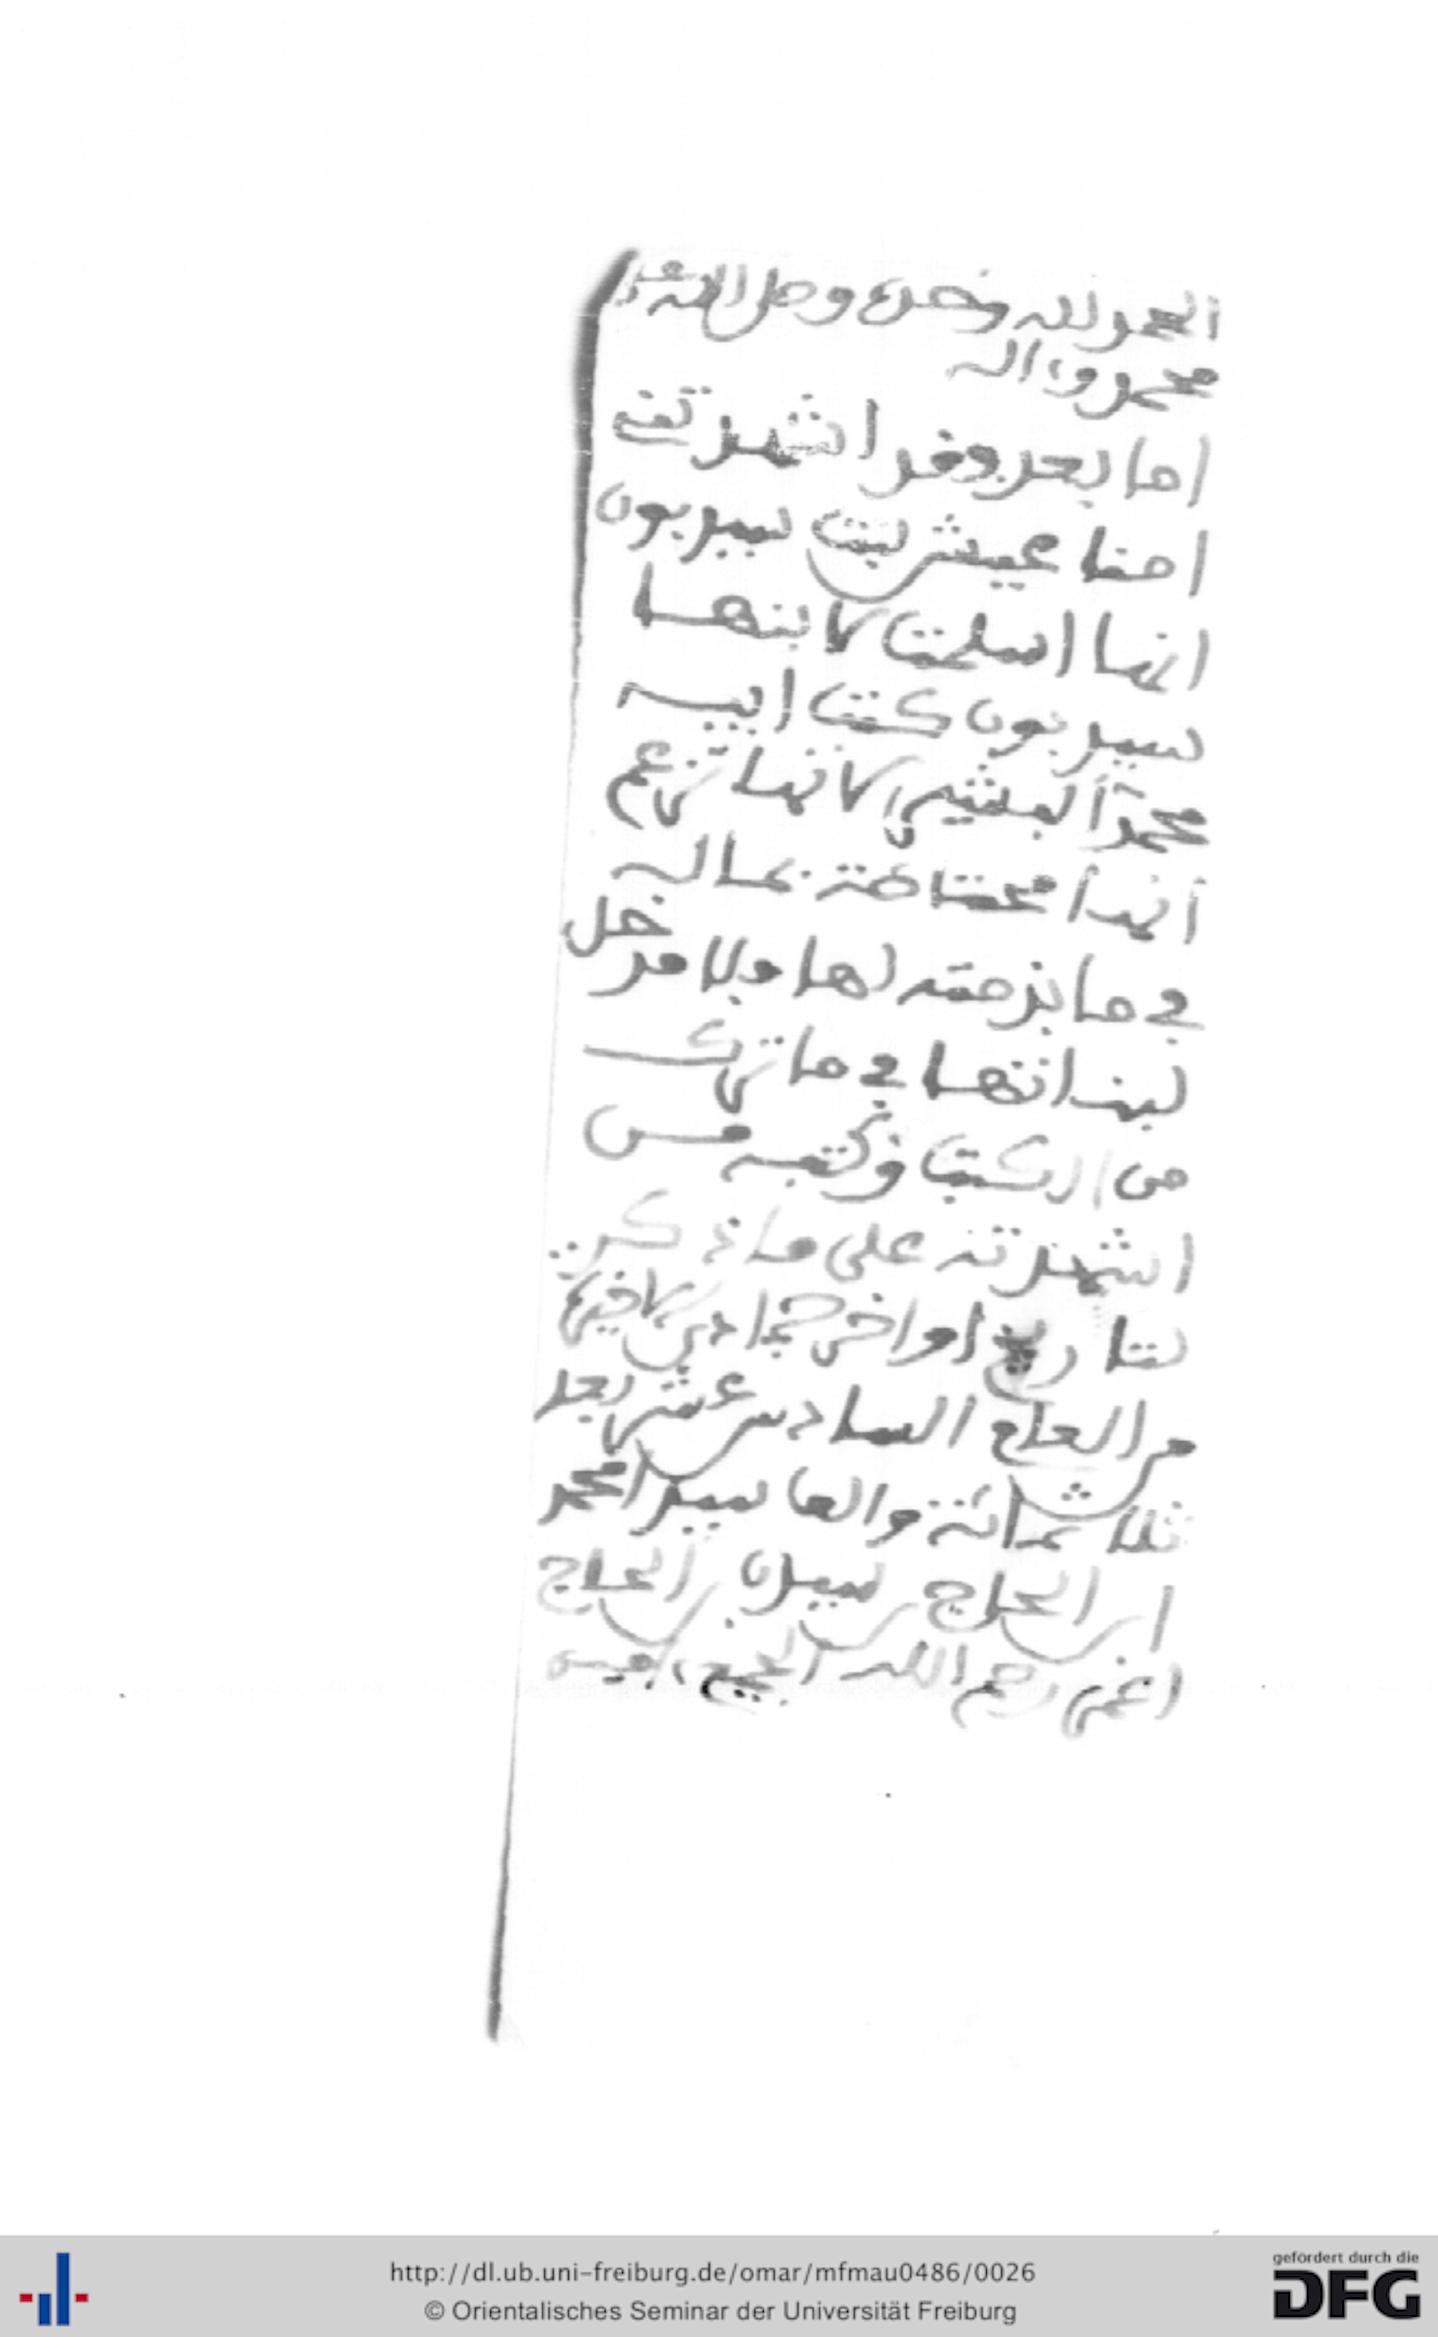 الحمد لله وحده وصلى الله على
محمد وءاله
اما بعد وقد اشهدتني
امنا عيش بنت سيد بون
انها اسلمت لابنها
سيد بون كتب ابيه
محمدا البشير لانها تزعم
أنها محتاطة بماله
في ما بذمته لها ولا مدخل
لبنداتها في ما ترك
من الكتب وكتبه من
اشهدته على ما ذكر
بتاريخ اواخر جمادى الاخيرة
من العام السادس عشر بعد
ثلاثمائة والف سيد امحمد
ابن الحاج سيد بن الحاج
اعمر رحم الله الجميع ءامين
http://dl.ub.uni-freiburg.de/omar/mfmau0486/0026
© Orientalisches Seminar der Universität Freiburg
gefördert durch die
DFG